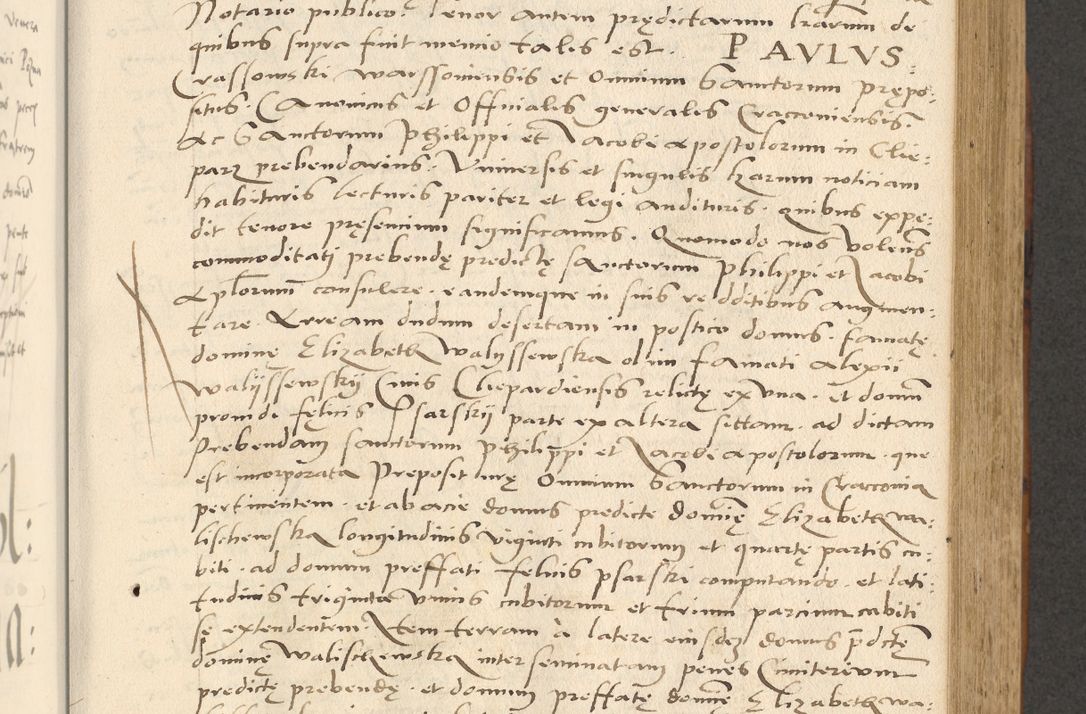 Notario publico. Tenor autem prędictarum lrarum de
quibus supra fuit mencio talis est. PAVLVS
Crassowski, Warssouiensis et Omnium Sanctorum prępo:
situs. Canonicus et Officialis generalis Cracouiensis.
Ac Sanctorum Philippi et Iacobi Apostolorum in Clie:
parz prebendarius. Vniuersis et singulis harum noticiam
habituris lecturis pariter et legi audituris. quibus expe:
dit tenore pręsencium significamus. Quomodo nos volens
commoditati prebendę predictę sanctorum Philippi et Iacobi
Aplorum consulere. eandemque in suis redditibus augmen:
tare. Erream dudum desertam in postico domus. famatę
dominę Elizabeth Walyssewska olim famati Alexii
Walyssewskij Ciuis Clepardiensis relictę ex vna. et domum
prouidi fęlicis Psarskij parte ex altera sittam. ad dictam
Prebendam sanctorum Philippi et Iacobi Apostolorum. que
est incorporata Prepositurę Omnium Sanctorum in Cracouia
pertinentem. et ab acie domus predicte domię Elizabeth Wa:
lischewska longitudinis viginti cubitorum et quartę partis cu:
biti. ad domum preffati felicis psarski computando. et lati:
tudinis triginta vnius cubitorum et trium parcium cubiti
sę extendentem. Item terram a latere eiusdem domus prdctę
dominę Walischewska inter seminatam penes Cimiterium
predictę prebendę. et domum preffatę domię Elizabeth wa: